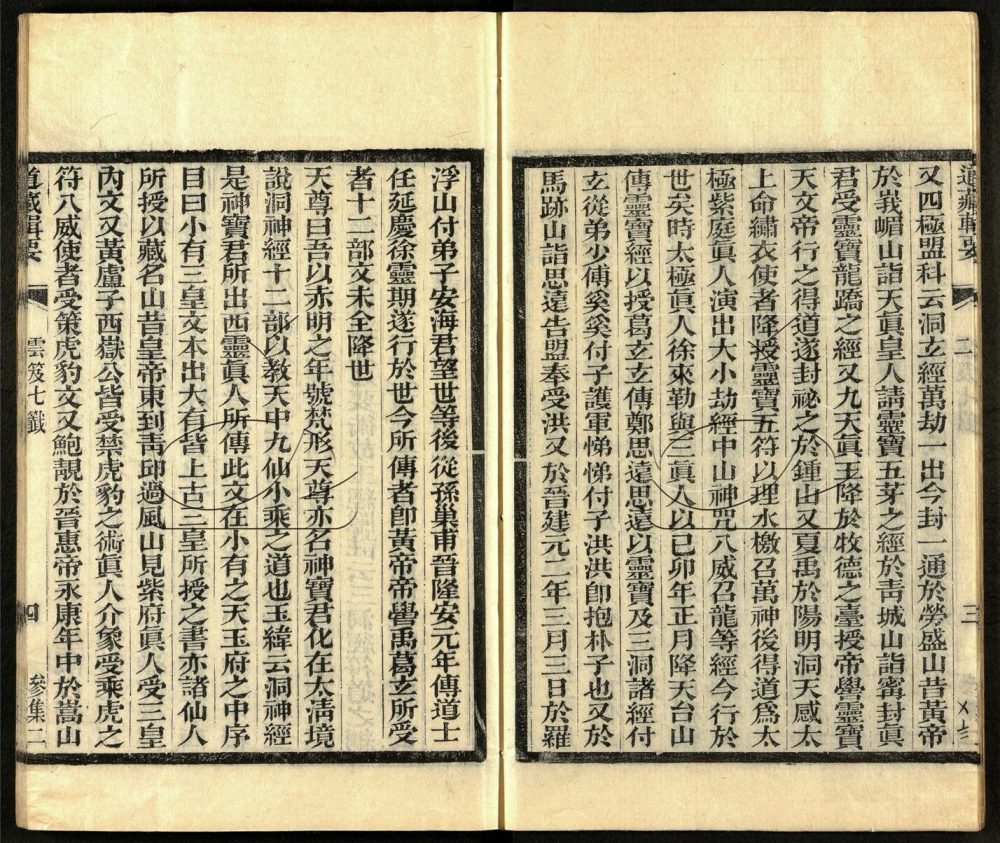 道藏輯要
三
又四極盟科云洞玄經萬劫一出今封一通於勞盛山昔黃帝
於峩嵋山詣天眞皇人請靈寶五芽之經於靑城山詣甯封眞
君受靈寶龍蹻之經又九天眞王降於牧德之臺授帝嚳靈寶
天文帝行之得道遂封祕之於鍾山又夏禹於陽明洞天感太
上命繡衣使者降授靈寶五符以理水檄召萬神後得道爲太
極紫庭眞人演出大小劫經中山神咒八威召龍等經今行於
世矣時太極眞人徐來勒與三眞人以己卯年正月降天台山
傳靈寶經以授葛玄玄傳鄭思遠思遠以靈寶及三洞諸經付
玄從弟少傅奚奚付子護軍悌悌付子洪洪卽抱朴子也又於
馬跡山詣思遠吿盟奉受洪又於晉建元二年三月三日於羅
浮山付弟子安海君望世等後從孫巢甫晉隆安元年傳道士
任延慶徐靈期遂行於世今所傳者卽黃帝帝嚳禹葛玄所受
者十二部文未全降世
天尊曰吾以赤明之年號梵形天尊亦名神寶君化在太淸境
說洞神經十二部以敎天中九仙小乘之道也玉緯云洞神經
是神寶君所出西靈眞人所傳此文在小有之天玉府之中序
目曰小有三皇文本出大有皆上古三皇所授之書亦諸仙人
所授以藏名山昔皇帝東到靑邱過風山見紫府眞人受三皇
內文又黃盧子西嶽公皆受禁虎豹之術眞人介象受乘虎之
符八威使者受策虎豹文又鮑靚於晉惠帝永康年中於嵩山
道藏輯要
雲笈七籤
四
參集二